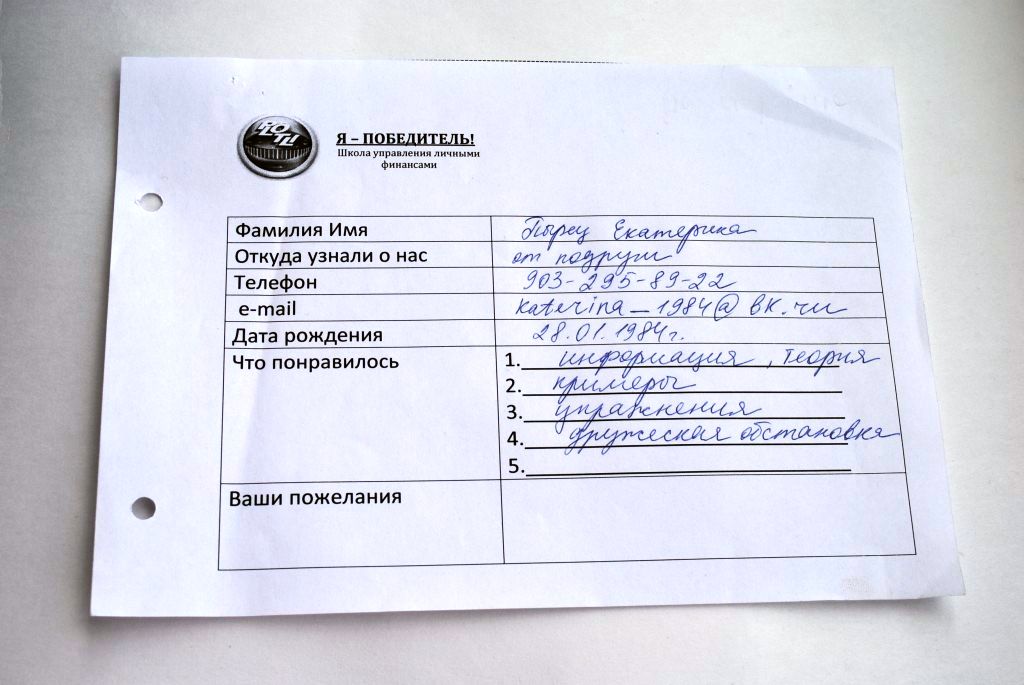 Я – ПОБЕДИТЕЛЬ!
Школа управления личными
финансами
Фамилия Имя Пырец Екатерина
Откуда узнали о нас от подруги
Телефон 903-295-89-22
e-mail katerina_1984@bk.ru
Дата рождения 28.01.1984г.
Что понравилось 1. информация, теория
2. примеры
3. упражнения
4. дружеская обстановка
5.
Ваши пожелания